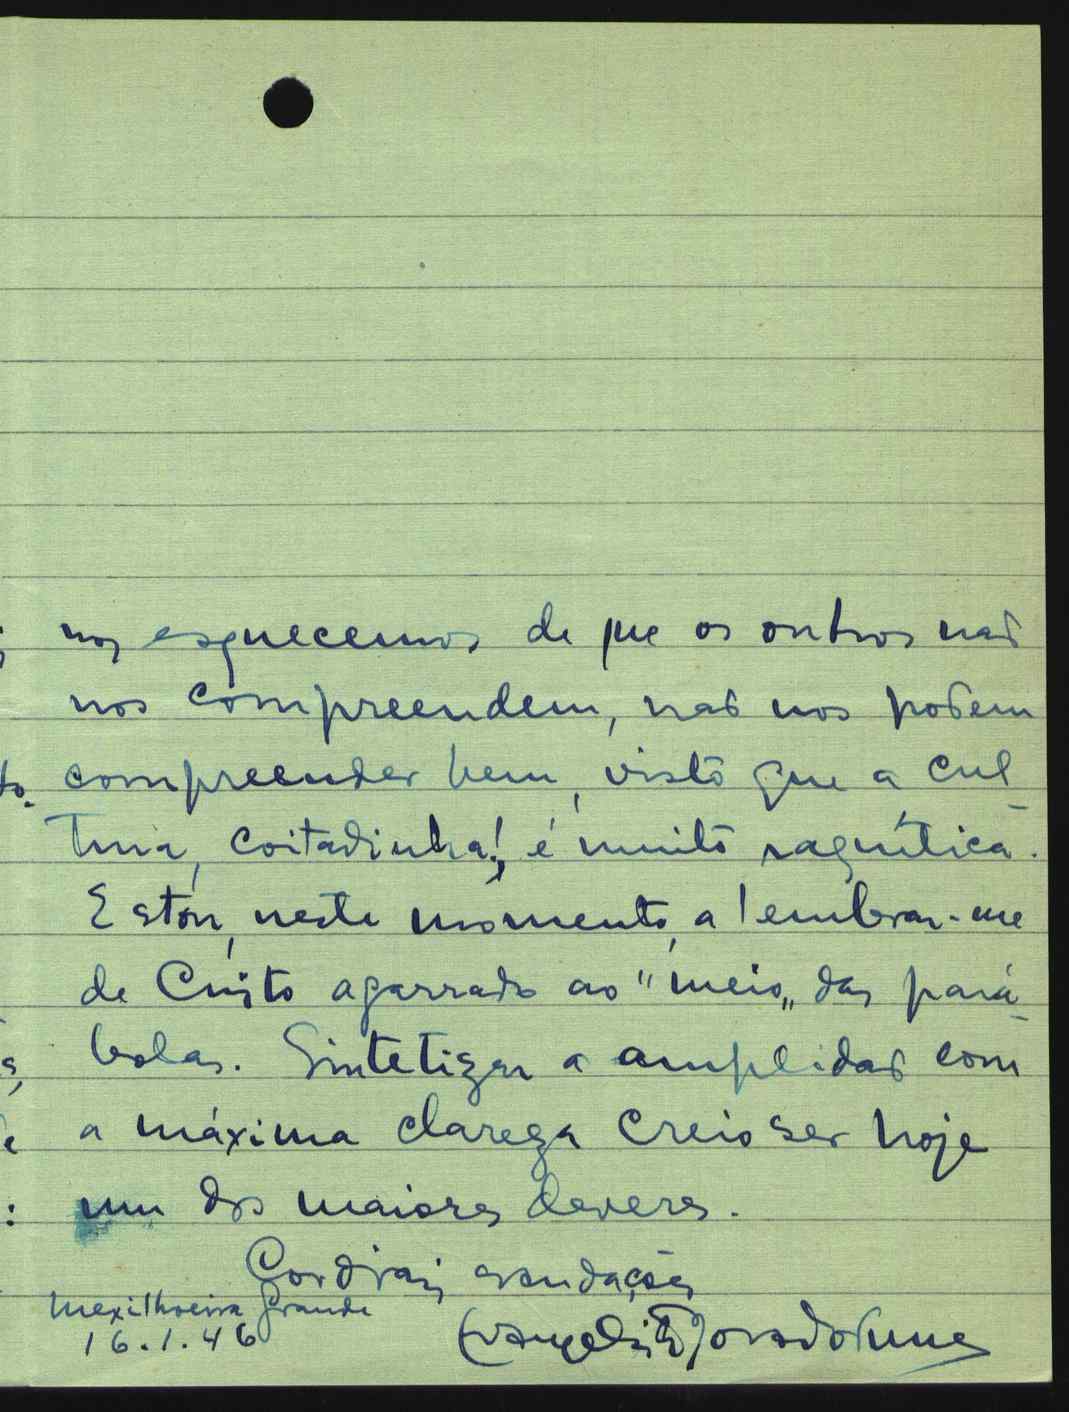 nos esquecemos de que os outros não
nos compreendem, não nos podem
compreender bem, visto que a cul-
tura, coitadinha!, é muito raquítica.
Estou, neste momento, a lembrar-me
de Cristo agarrado ao "meio„ das pará-
bolas. Sintetizar a amplidão com
a máxima clareza creio ser hoje
um dos maiores deveres.
Cordiais saudações
Mexilhoeira Grande
16.1.46